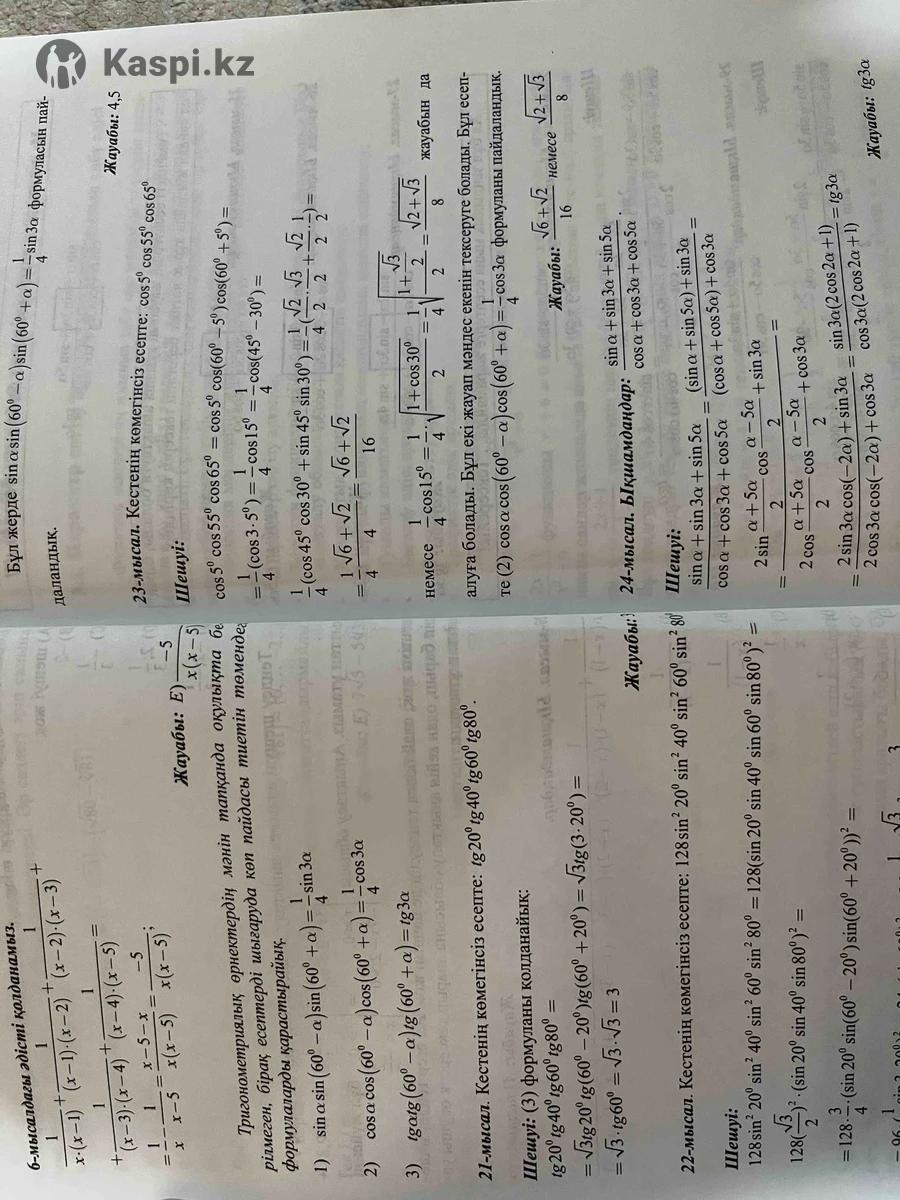 Kaspi.kz
6-мысалдағы әдісті қолданамыз.
1/(x·(x−1)) + 1/((x−1)·(x−2)) + 1/((x−2)·(x−3)) +
+ 1/((x−3)·(x−4)) + 1/((x−4)·(x−5)) =
= 1/x − 1/(x−5) = (x−5−x)/(x(x−5)) = −5/(x(x−5));
Жауабы: E) −5/(x(x−5)
Тригонометриялық өрнектердің мәнін тапқанда оқулықта бе
рілмеген, бірақ есептерді шығаруда көп пайдасы тиетін төмендег
формулаларды қарастырайық.
1) sinα sin(60⁰−α)sin(60⁰+α) = 1/4 sin3α
2) cosα cos(60⁰−α)cos(60⁰+α) = 1/4 cos3α
3) tgαtg(60⁰−α)tg(60⁰+α) = tg3α
21-мысал. Кестенің көмегінсіз есепте: tg20⁰tg40⁰tg60⁰tg80⁰.
Шешуі: (3) формуланы қолданайық:
tg20⁰tg40⁰tg60⁰tg80⁰ =
= √3tg20⁰tg(60⁰−20⁰)tg(60⁰+20⁰) = √3tg(3·20⁰) =
= √3·tg60⁰ = √3·√3 = 3
Жауабы:
22-мысал. Кестенің көмегінсіз есепте: 128sin²20⁰sin²40⁰sin²60⁰sin²80⁰
Шешуі:
128sin²20⁰sin²40⁰sin²60⁰sin²80⁰ = 128(sin20⁰sin40⁰sin60⁰sin80⁰)² =
128(√3/2)²·(sin20⁰sin40⁰sin80⁰)² =
= 128·3/4·(sin20⁰sin(60⁰−20⁰)sin(60⁰+20⁰))² =
Бұл жерде sinα sin(60⁰−α)sin(60⁰+α) = 1/4 sin3α формуласын пай-
даландық.
Жауабы: 4,5
23-мысал. Кестенің көмегінсіз есепте: cos5⁰cos55⁰cos65⁰
Шешуі:
cos5⁰cos55⁰cos65⁰ = cos5⁰cos(60⁰−5⁰)cos(60⁰+5⁰) =
= 1/4(cos3·5⁰) = 1/4 cos15⁰ = 1/4 cos(45⁰−30⁰) =
1/4(cos45⁰cos30⁰ + sin45⁰sin30⁰) = 1/4(√2/2·√3/2 + √2/2·1/2) =
= 1/4 (√6+√2)/4 = (√6+√2)/16
немесе 1/4 cos15⁰ = 1/4·√((1+cos30⁰)/2) = 1/4√((1+√3/2)/2) = √(2+√3)/8 жауабын да
алуға болады. Бұл екі жауап мәндес екенін тексеруге болады. Бұл есеп-
те (2) cosα cos(60⁰−α)cos(60⁰+α) = 1/4 cos3α формуланы пайдаландық.
Жауабы: (√6+√2)/16 немесе √(2+√3)/8
24-мысал. Ықшамдаңдар: (sinα+sin3α+sin5α)/(cosα+cos3α+cos5α).
Шешуі:
(sinα+sin3α+sin5α)/(cosα+cos3α+cos5α) = ((sinα+sin5α)+sin3α)/((cosα+cos5α)+cos3α) =
= (2sin (α+5α)/2 cos (α−5α)/2 + sin3α)/(2cos (α+5α)/2 cos (α−5α)/2 + cos3α) =
= (2sin3αcos(−2α)+sin3α)/(2cos3αcos(−2α)+cos3α) = sin3α(2cos2α+1)/cos3α(2cos2α+1) = tg3α
Жауабы: tg3α